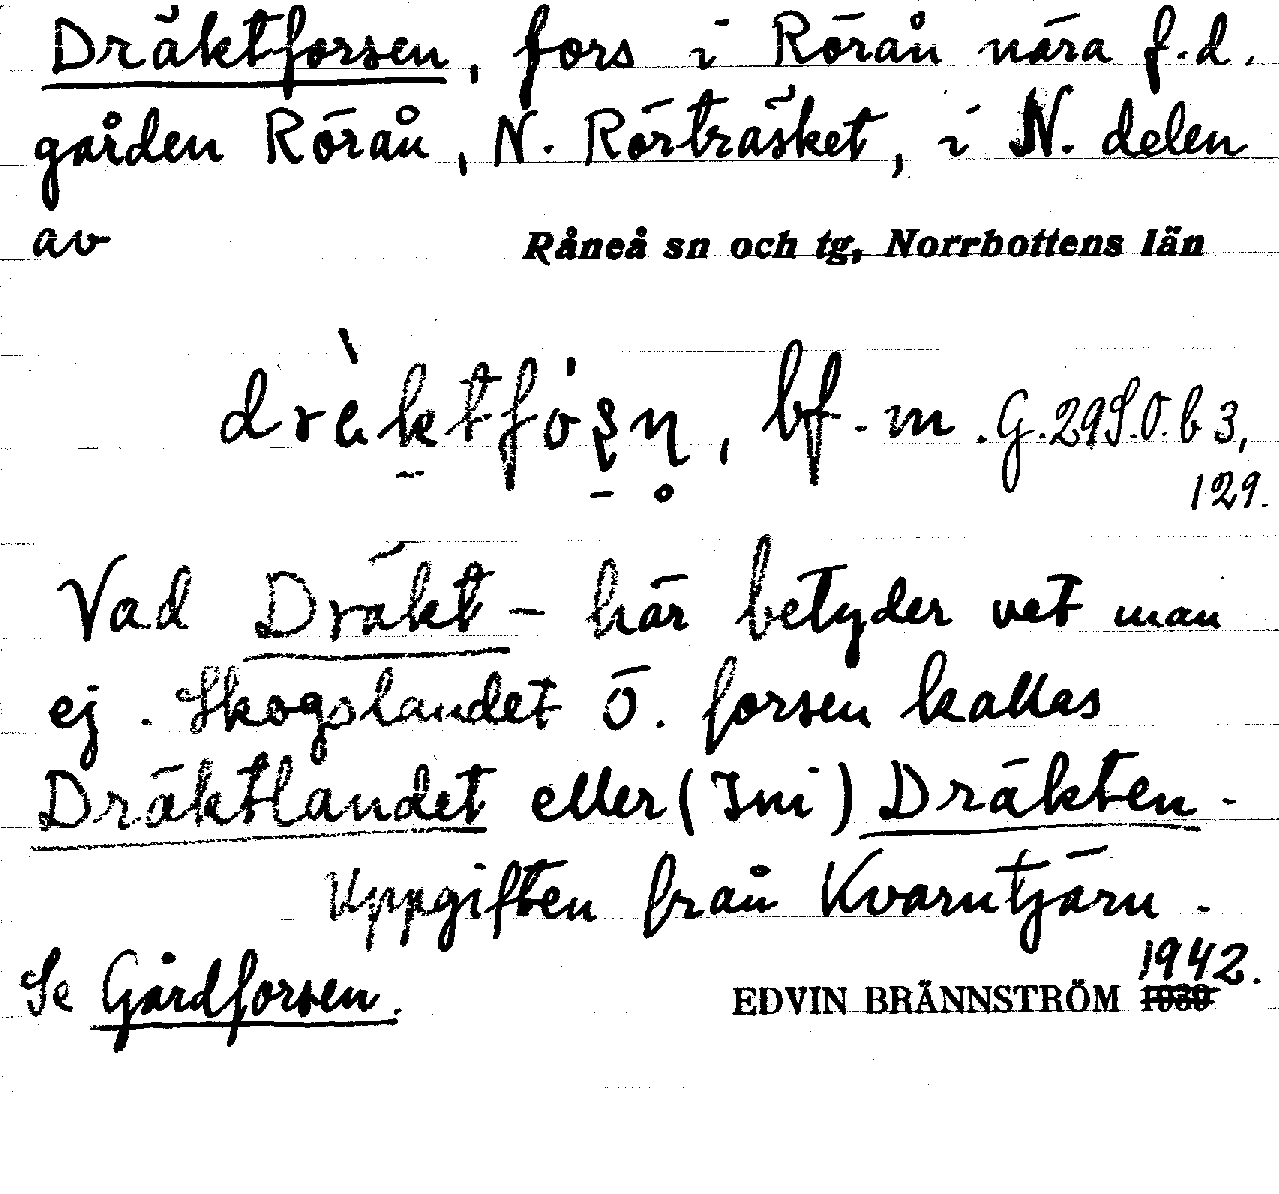 Dräktforsen, fors i Rörån nära f.d.
gården Rörån, N. Rörträsket, i N. delen
av Råneå sn och tg, Norrbottens län
bf. m. G. 29 S.O. b 3,
129.
Vad Dräkt- här betyder vet man
ej. Skogslandet Ö. forsen kallas
Dräktlandet eller (Ini) Dräkten.
Uppgiften från Kvarntjärn.
1942.
Se Gårdforsen. EDVIN BRÄNNSTRÖM 1939